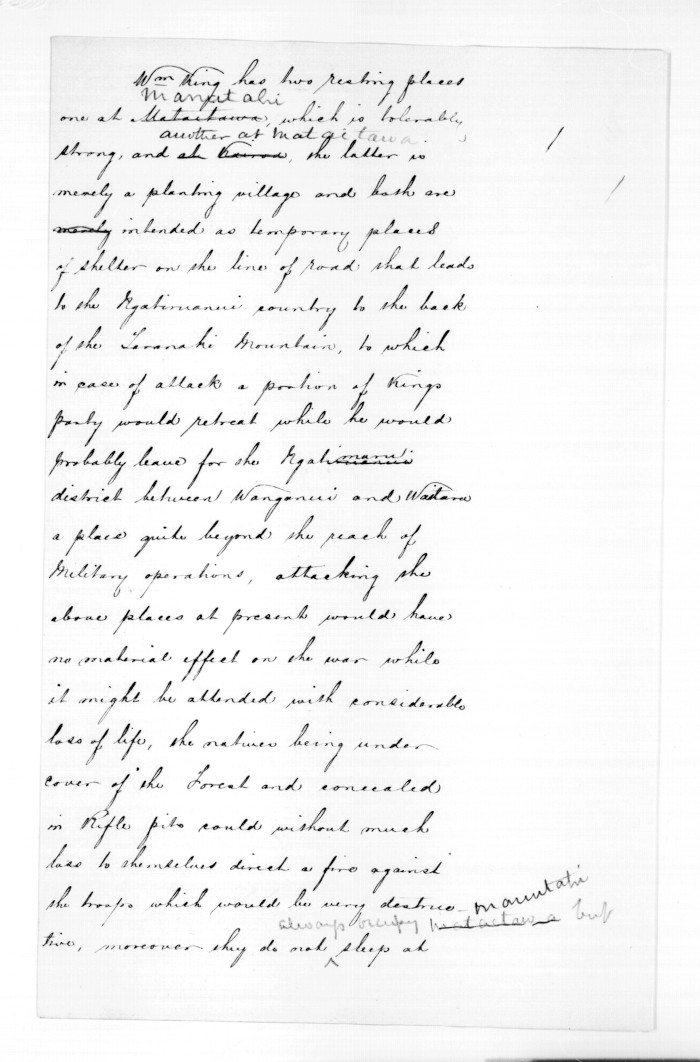 Wm King has two resting places
Manutahi
one at Mataitawa, which is tolerably
another at Mataitawa.
strong, and at Kairoa, the latter is
merely a planting village and both are
merely intended as temporary places
of shelter on the line of road that leads
to the Ngatiruanui country to the back
of the Taranaki Mountain, to which
in case of attack a portion of Kings
party would retreat while he would
probably leave for the Ngatimaru
district between Wanganui and Waitara
a place quite beyond the reach of
Military operations, attacking the
above places at present would have
no material effect on the war while
it might be attended with considerable
loss of life, the natives being under
cover of the Forest and concealed
in Rifle pits could without much
loss to themselves direct a fire against
the troops which would be very destruc-
Manutahi
always occupy Mataitawa but
tive, moreover they do not sleep at